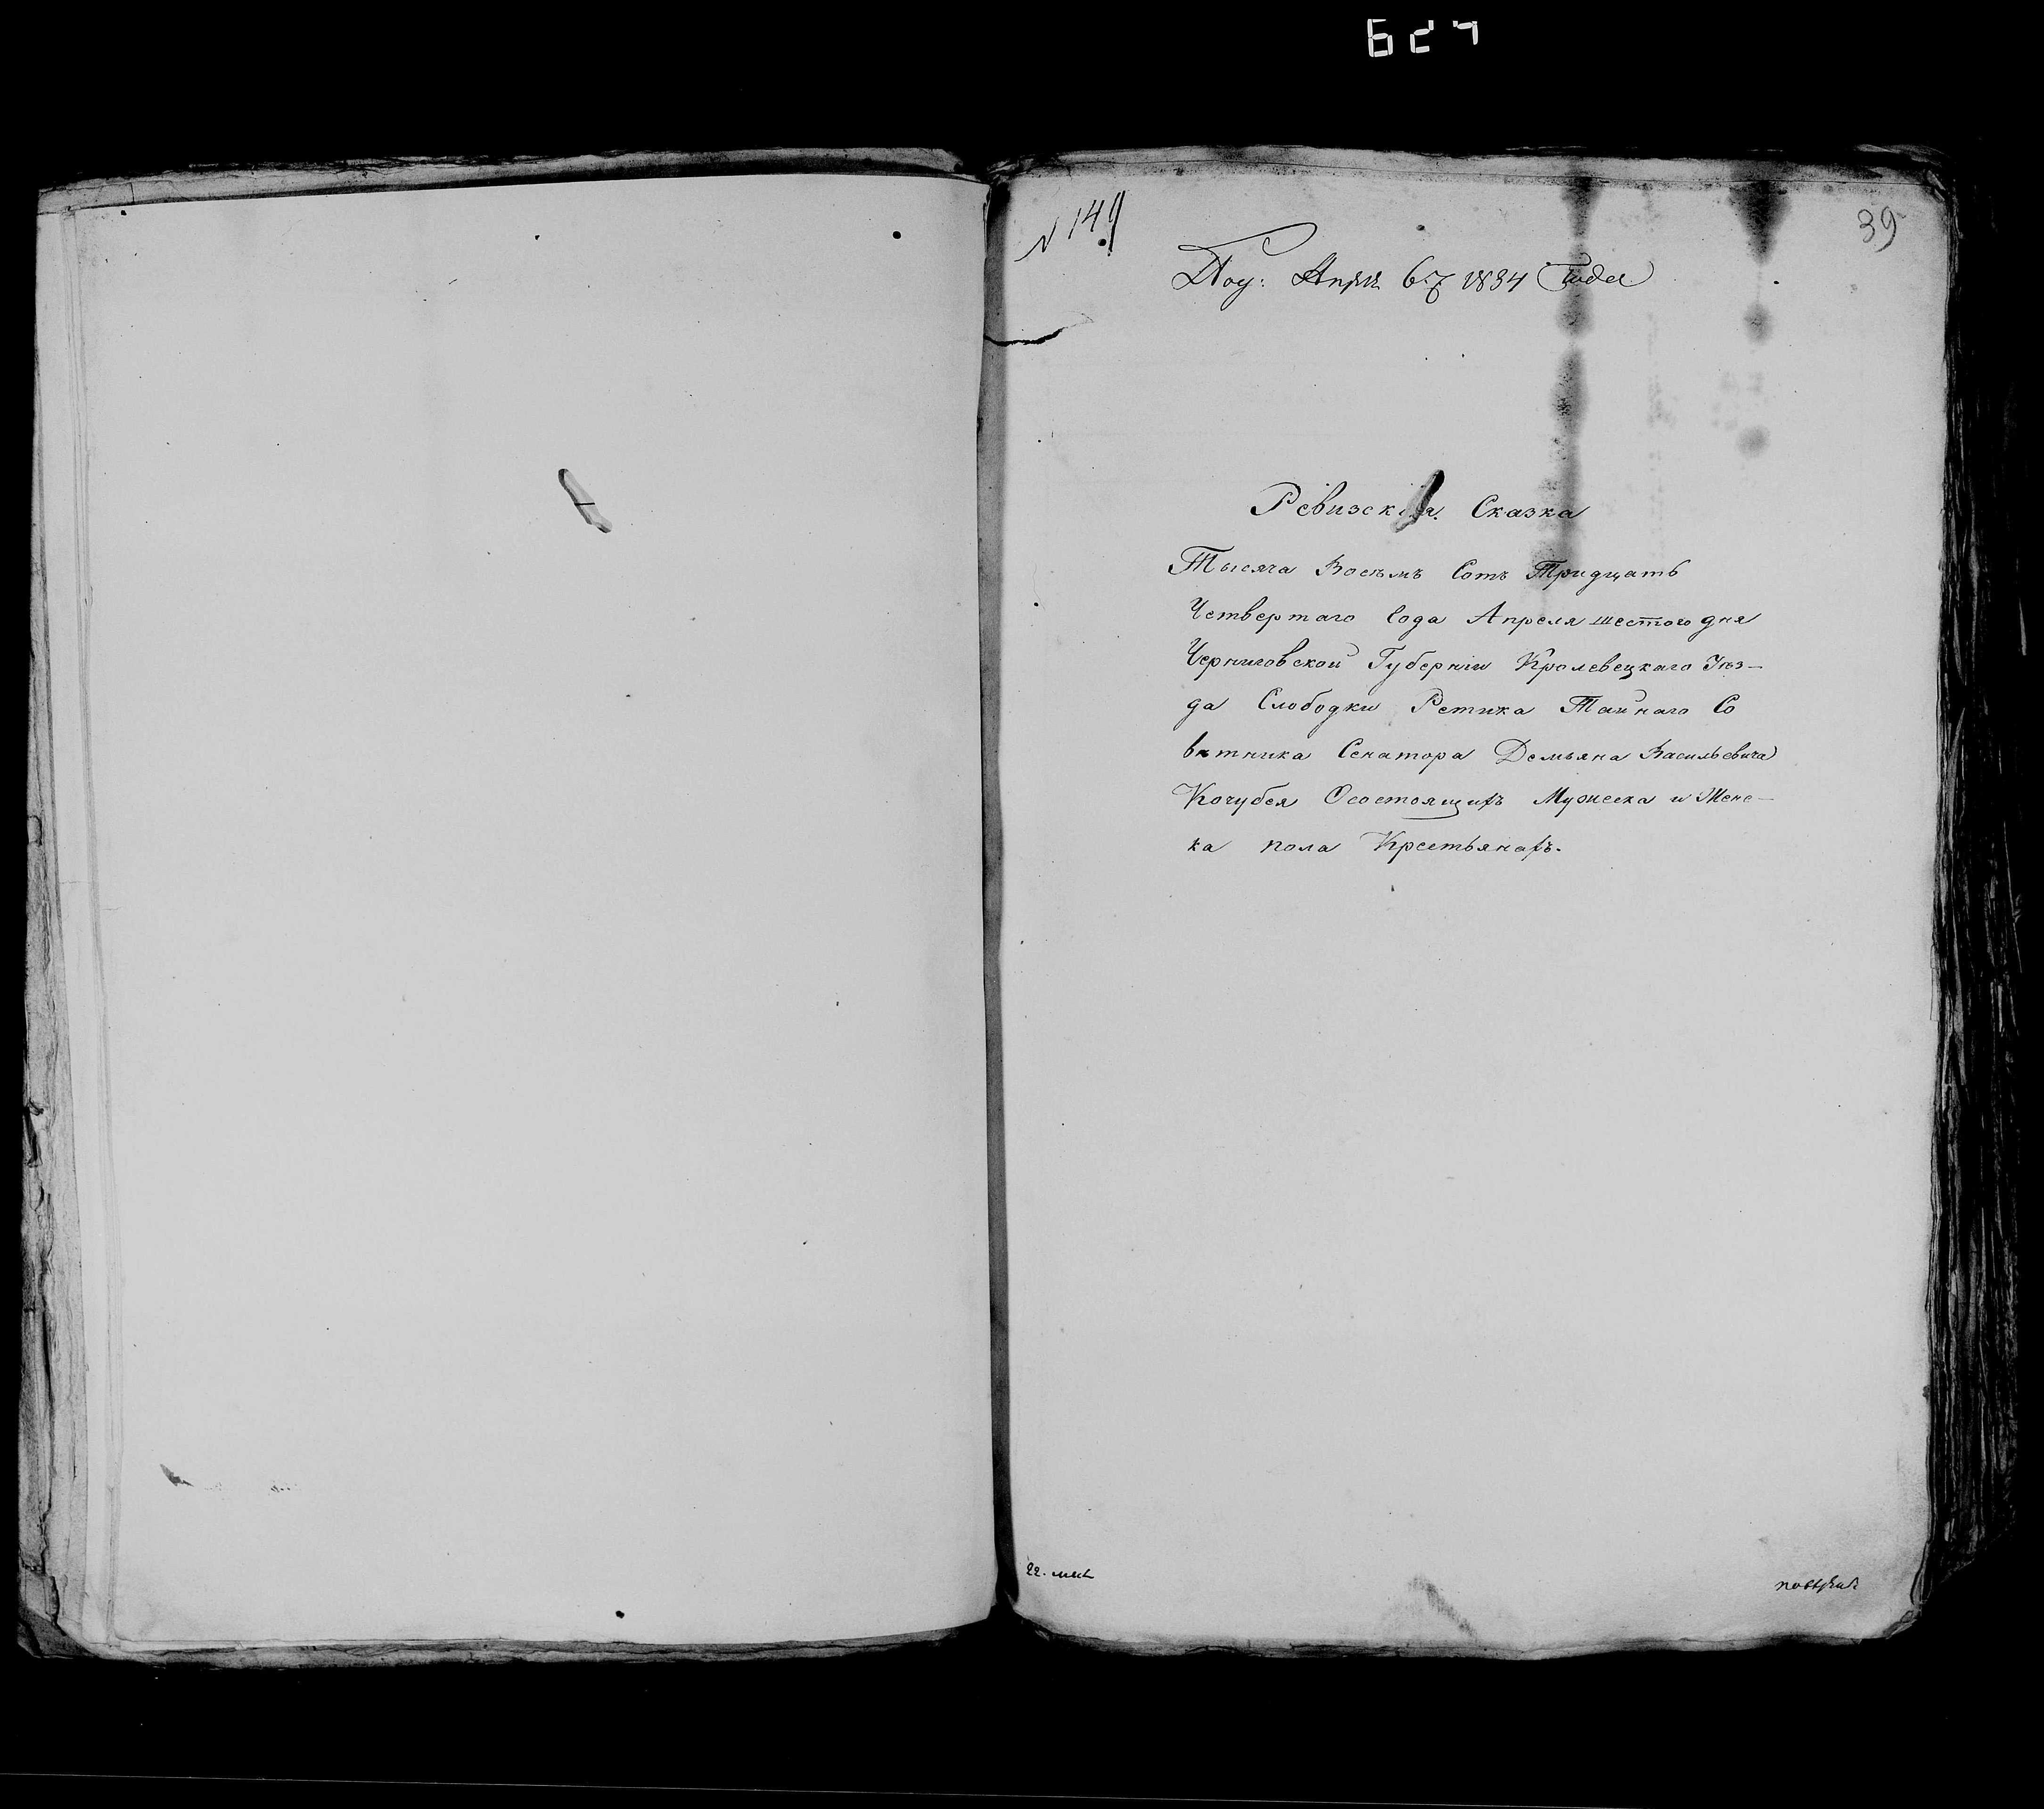 624
N 149
39
Поу: Апрля 6. 1834 Года
Ревизская Сказка
Тысяча Восемъ Сотъ Тридцать
Четвертаго Года Апреля шестого дня
Черниговской Губерніи Кролевецкаго Уез-
да Слободки Ретика Тайнаго Со
ветника Сенатора Демьяна Васильевича
Кочубея Осостоящихъ Мужеска и Женс-
ка пола Крестьянахъ.
22.